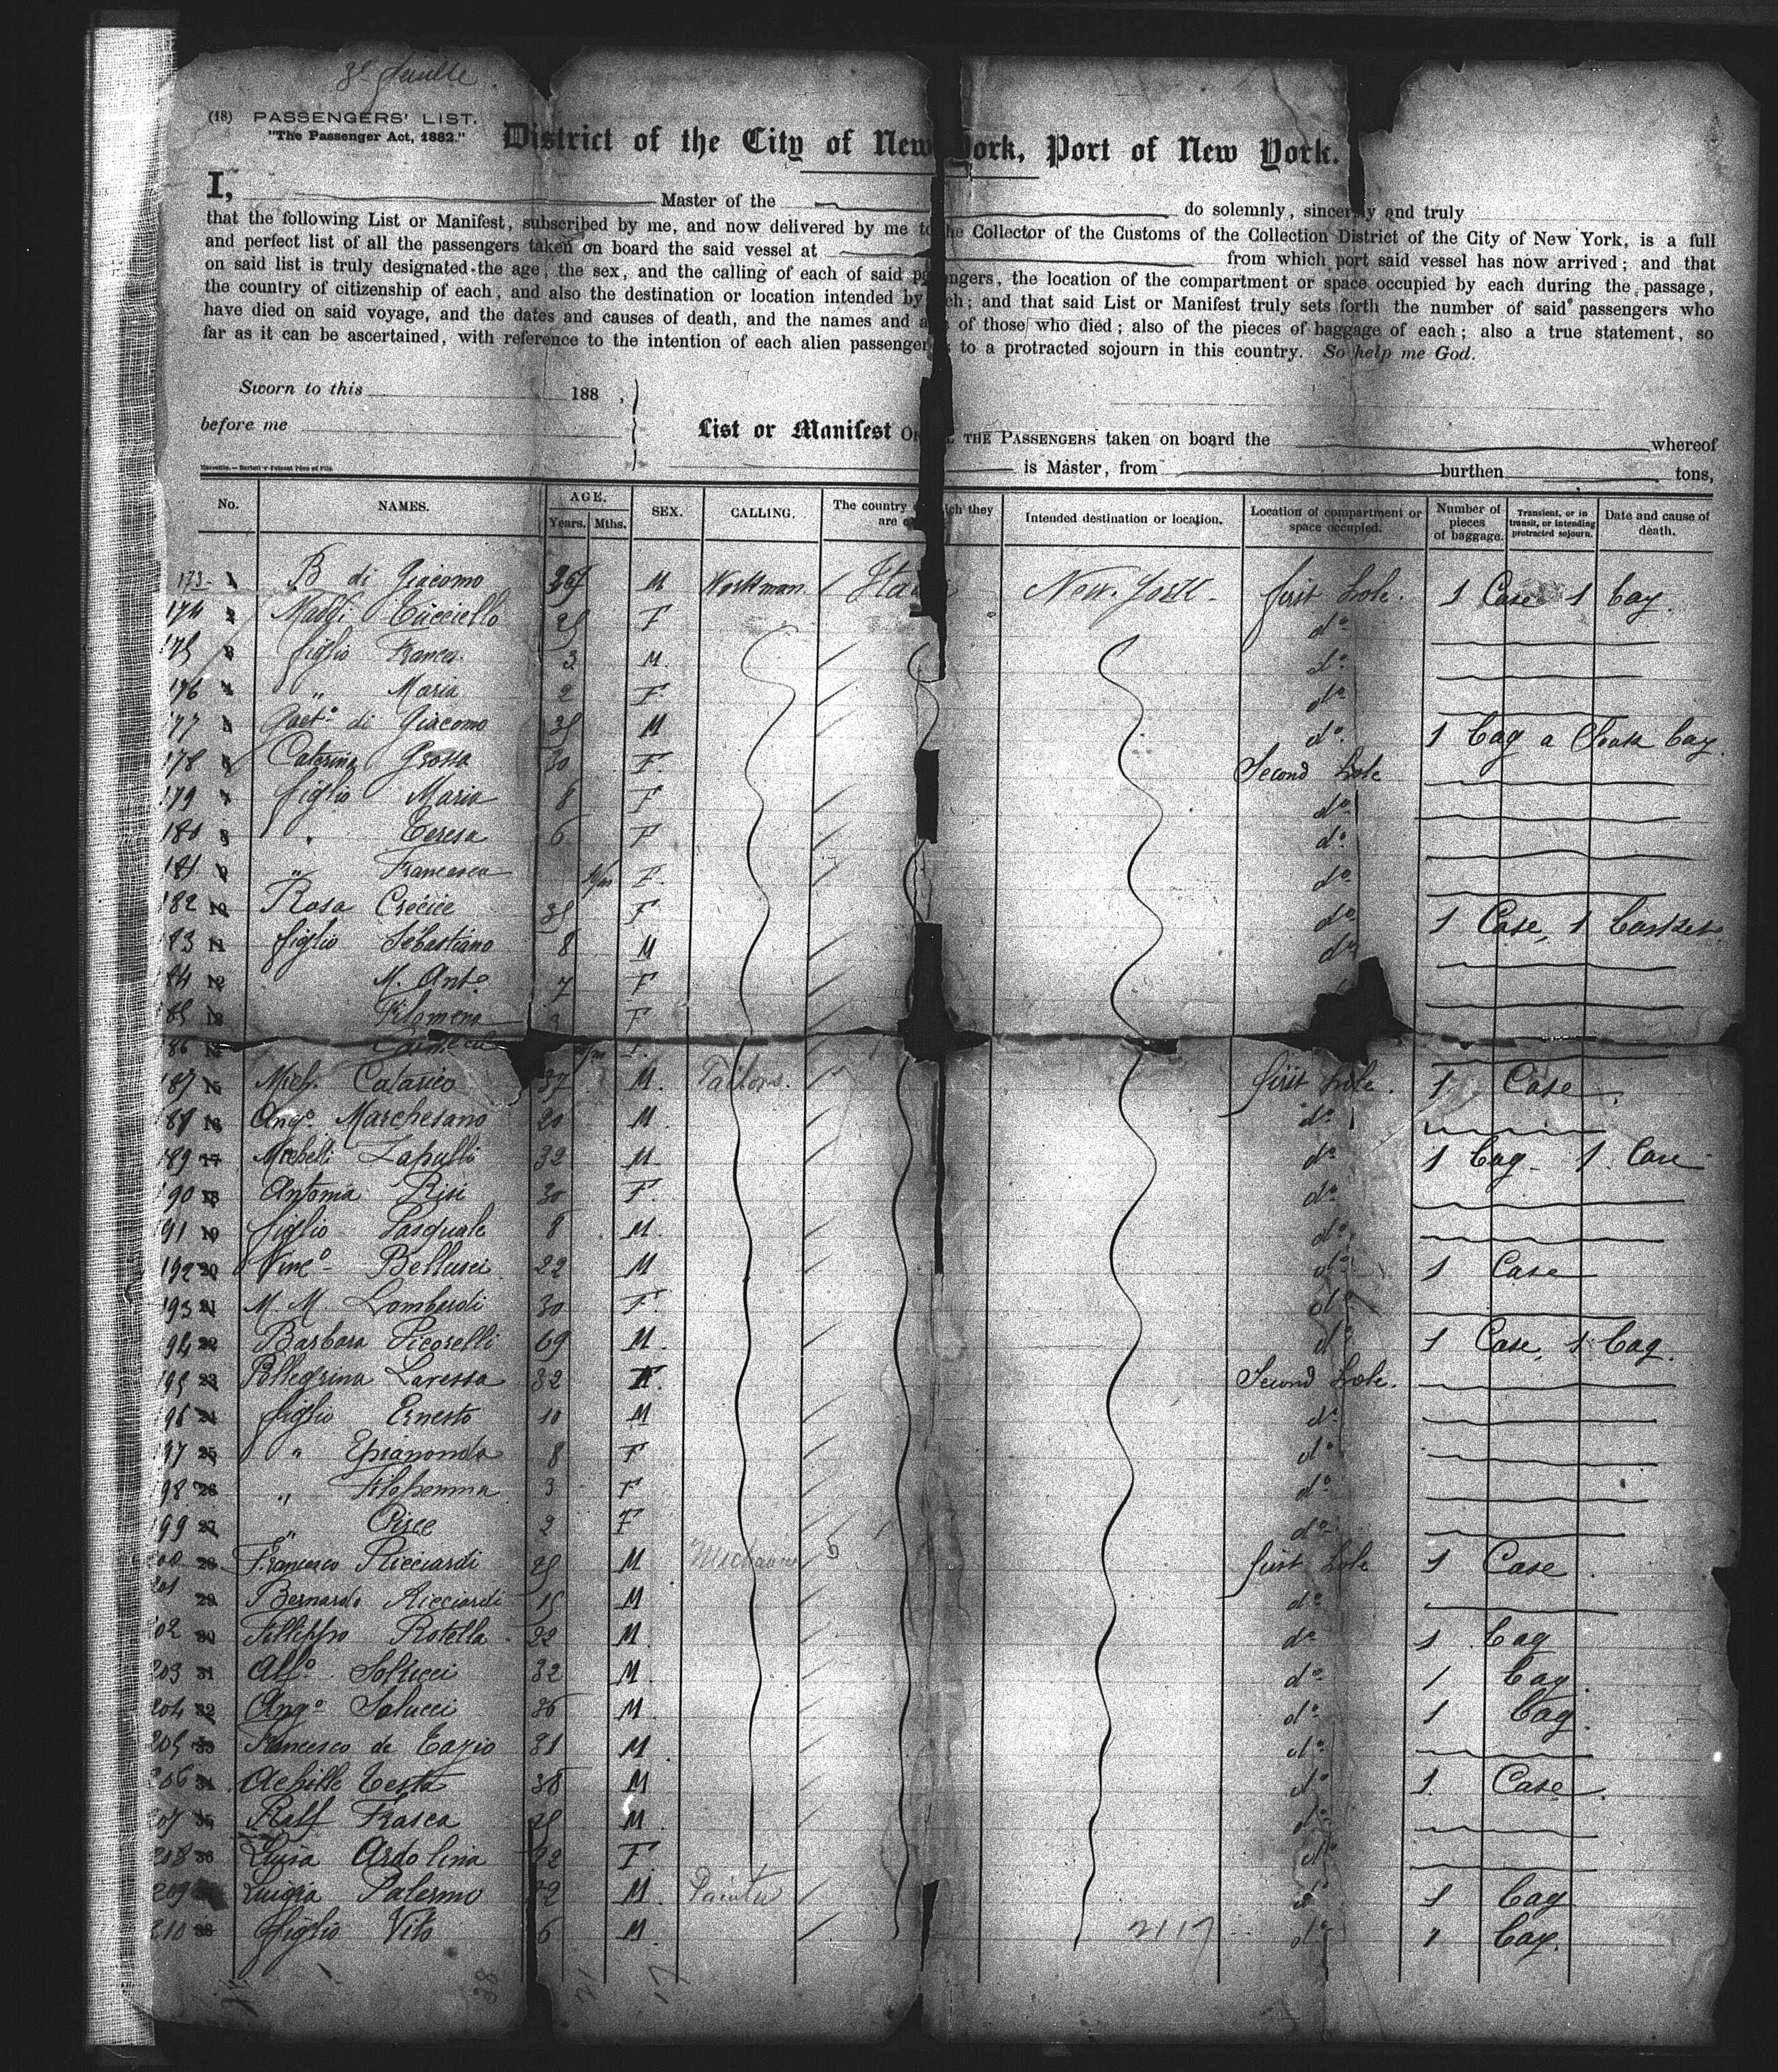 (18) PASSENGERS' LIST.
"The Passenger Act, 1882."
District of the City of New York, Port of New York.
I, Master of the do solemnly, sincerely and truly
that the following List or Manifest, subscribed by me, and now delivered by me to the Collector of the Customs of the Collection District of the City of New York, is a full
and perfect list of all the passengers taken on board the said vessel at from which port said vessel has now arrived; and that
on said list is truly designated the age, the sex, and the calling of each of said passengers, the location of the compartment or space occupied by each during the passage,
the country of citizenship of each, and also the destination or location intended by each; and that said List or Manifest truly sets forth the number of said passengers who
have died on said voyage, and the dates and causes of death, and the names and a of those who died; also of the pieces of baggage of each; also a true statement, so
far as it can be ascertained, with reference to the intention of each alien passenger to a protracted sojourn in this country. So help me God.
Sworn to this 188 ,
before me
List or Manifest OF THE PASSENGERS taken on board the whereof
is Master, from burthen tons,
No. NAMES. AGE. Years. Mths. SEX. CALLING. The country of which they are Intended destination or location. Location of compartment or space occupied. Number of pieces of baggage. Transient, or in transit, or intending protracted sojourn. Date and cause of death.
173 1 B di Giacomo M Workman Ita New York first hole. 1 Case 1 bag
174 2 Cucciello 25 F do
175 3 figlio Frances. 3 M. do
176 4 " Maria 2 F do
177 5 Gaeto di Giacomo 35 M do 1 bag a bag
178 6 Caterina Grossa 30 F. Second hole
179 7 figlio Maria 8 F do
180 8 " Teresa 6 F do
181 9 " Francesca F. do
182 10 Rosa 35 F do 1 Case, 1 basket
183 11 figlio Sebastiano 8 M do
184 12 M. Anto 7 F
185 13 Filomena 3 F
186 14 F.
187 15 Mich. Catarico 37 M. Tailors. first hole. 1 Case
188 16 Ango Marchesano 20 M. do
189 17 Michelli Zapulli 32 M do 1 bag 1 Case
190 18 Antonia Risi 30 F. do
191 19 figlio Pasquale 8 M. do
192 20 Vinco Bellusci 22 M do 1 Case
193 21 M. M. Lombardi 30 F. do
194 22 Barbara Picorelli 69 M. do 1 Case, 1 bag.
195 23 Pellegrina Laressa 32 F. Second hole.
196 24 figlio Ernesto 10 M do
197 25 " 8 F do
198 26 " Filopemma 3 F do
199 27 " 2 F do
200 28 Francesco Ricciardi 25 M first hole 1 Case
201 29 Bernardo Ricciardi 15 M do
202 30 Fillippo Rotella 22 M. do 1 bag
203 31 Alfo Solucci 32 M. do 1 bag.
204 32 Ango Solucci 36 M. do 1 bag.
205 33 Francesco de Eazio 31 M. do
206 34 Achille Testa 38 M do 1. Case.
207 35 Ralf Frasca 25 M do
208 36 Luisa Ardolina 22 F. do
209 Luigia Palermo 22 M. Painter do 1 bag
210 38 figlio Vito 6 M. do 1 bag.
38 21 17